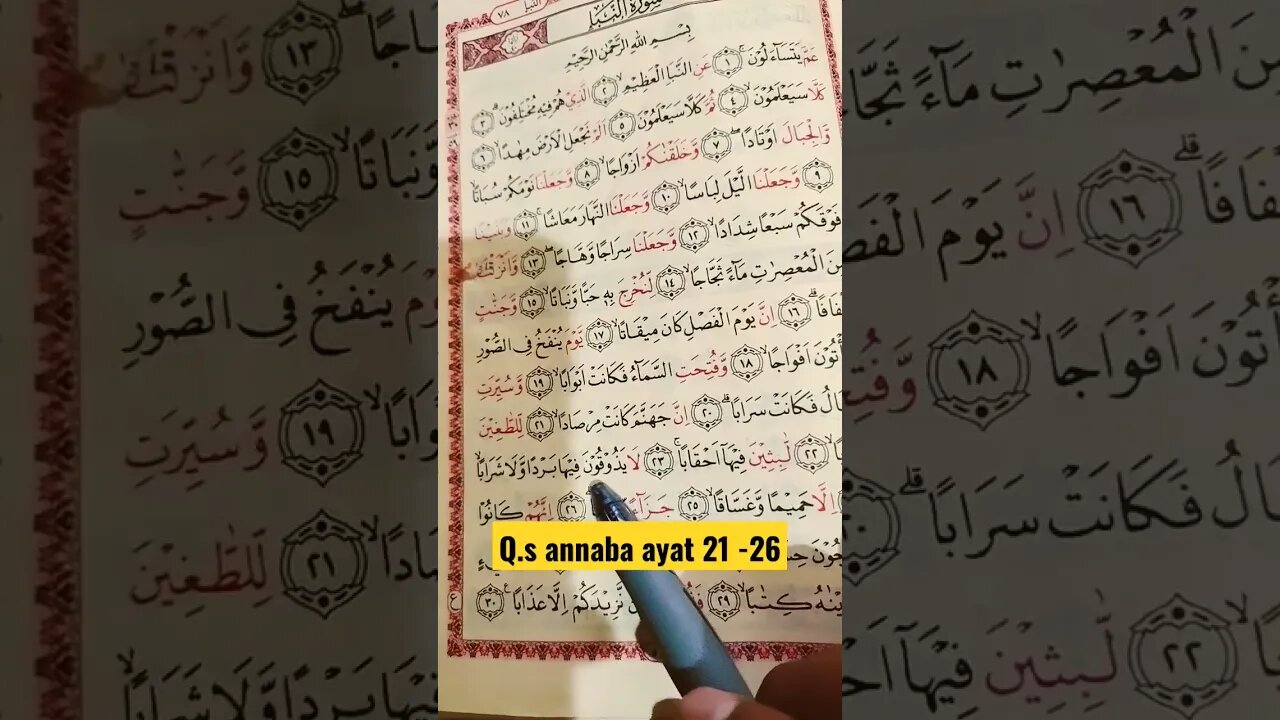 ٧٨
سورة النبإ
بِسْمِ اللّٰهِ الرَّحْمٰنِ الرَّحِيْمِ
عَمَّ يَتَسَاۤءَلُوْنَۚ ١ عَنِ النَّبَاِ الْعَظِيْمِۙ ٢ الَّذِيْ هُمْ فِيْهِ مُخْتَلِفُوْنَۗ ٣
كَلَّا سَيَعْلَمُوْنَۙ ٤ ثُمَّ كَلَّا سَيَعْلَمُوْنَ ٥ اَلَمْ نَجْعَلِ الْاَرْضَ مِهٰدًاۙ ٦
وَّالْجِبَالَ اَوْتَادًاۖ ٧ وَّخَلَقْنٰكُمْ اَزْوَاجًاۙ ٨ وَّجَعَلْنَا نَوْمَكُمْ سُبَاتًاۙ
٩ وَّجَعَلْنَا الَّيْلَ لِبَاسًاۙ ١٠ وَّجَعَلْنَا النَّهَارَ مَعَاشًاۚ ١١ وَبَنَيْنَا
فَوْقَكُمْ سَبْعًا شِدَادًاۙ ١٢ وَّجَعَلْنَا سِرَاجًا وَّهَّاجًاۖ ١٣ وَّاَنْزَلْنَا
مِنَ الْمُعْصِرٰتِ مَاۤءً ثَجَّاجًاۙ ١٤ لِّنُخْرِجَ بِهٖ حَبًّا وَّنَبَاتًاۙ ١٥ وَّجَنّٰتٍ
١٦ اِنَّ يَوْمَ الْفَصْلِ كَانَ مِيْقَاتًاۙ ١٧ يَّوْمَ يُنْفَخُ فِى الصُّوْرِ
اَفْوَاجًاۙ ١٨ وَّفُتِحَتِ السَّمَاۤءُ فَكَانَتْ اَبْوَابًاۙ ١٩ وَّسُيِّرَتِ
فَكَانَتْ سَرَابًاۗ ٢٠ اِنَّ جَهَنَّمَ كَانَتْ مِرْصَادًاۙ ٢١ لِّلطّٰغِيْنَ
٢٢ لّٰبِثِيْنَ فِيْهَآ اَحْقَابًاۚ ٢٣ لَا يَذُوْقُوْنَ فِيْهَا بَرْدًا وَّلَا شَرَابًاۙ
اِلَّا حَمِيْمًا وَّغَسَّاقًاۙ ٢٥ جَزَاۤءً ٢٦ اِنَّهُمْ كَانُوْا
Q.s annaba ayat 21 -26
كِتٰبًاۙ ٢٩ نَّزِيْدَكُمْ اِلَّا عَذَابًاۚ ٣٠